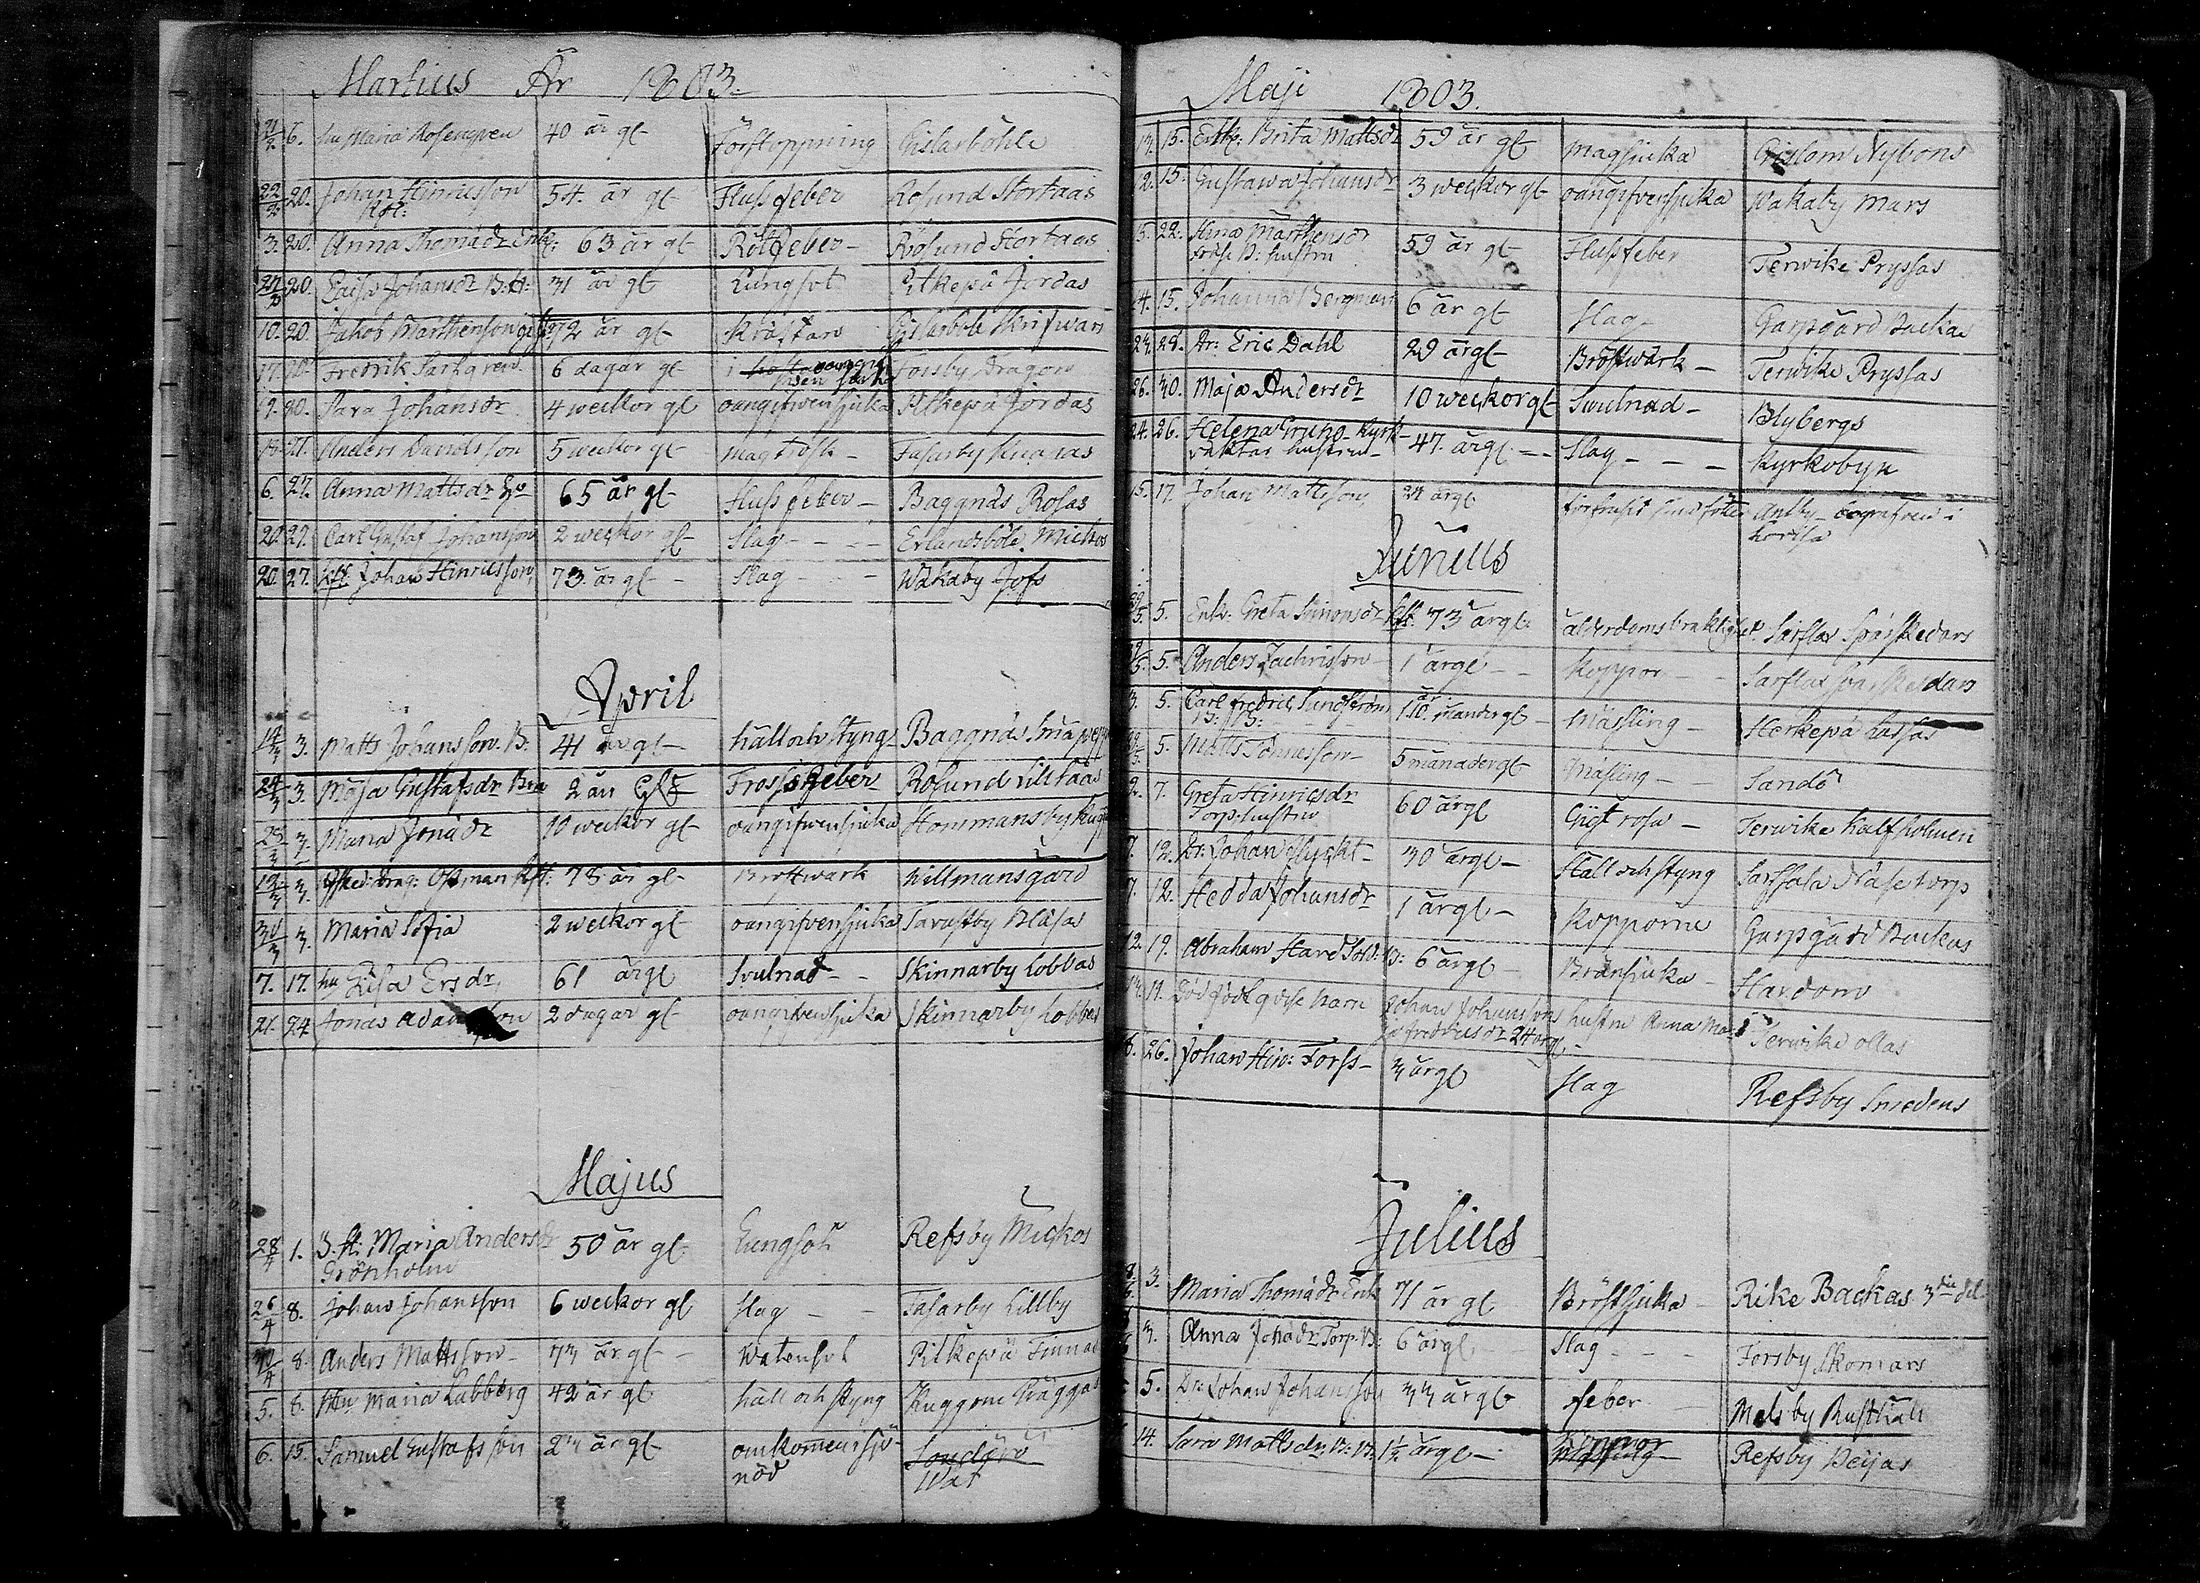 Martius År 1803.
21/2 6. Hu Maria Rosengren 40 år gl Förstoppning Gislarböhle
22/2 20. Johan Hinricsson 54. år gl Flussfeber Rösund Stortaas
Kfl:
3. 20. Anna Thomædr Enk: 63 år gl Rötfeber Rösund Stortaas
27/2 20. Caisa Johansdr B:H: 31 år gl Lungsot Pitkepä Jordas
10. 20. Jakob Mårthenson 72 år gl Kräftan Gislarböle Skrifwars
17. 20. Fredrik 6 dagar gl i Forsby Dragon
19. 20. Sara Johansdr 4 weckor gl oangifwen sjuka Pitkepä Jordas
19. 21. Anders Davidsson 5 weckor gl magtrösk Fasarby Knapas
6. 27. Anna Mattsdr 65 år gl Flussfeber Baggnäs Rosas
20. 27. Carl Gustaf Johansson 2 weckor gl Slag Erlandsböle Mickos
20. 27. Kfl Johan Hinricsson 73. år gl Slag Wåkaby Jofs
April
14/3 3. Matts Johansson B: 41 år gl håll och styng Baggnäs
24/3 3. Maja Gustafsdr 2 år Gl Frossfeber Rösund Lilltaas
23/3 3. Maria Jonædr 10 weckor gl oangifwen sjuka Hommansby
12/3 3. Afsked: Drag: Östman Kfl: 78 år gl Bröstwärk Willmansgård
30/3 3. Maria Sofia 2 weckor gl oangifven sjuka Saraftby Blåsas
7. 17. hu Lisa Ersdr 61 år gl Svulnad Skinnarby Lobbas
21. 24 Jonas Adamsson 2 dagar gl oangifven sjuka Skinnarby Lobbas
Majus
28/4 1. B. H: Maria Andersdr 50 år gl Lungsot Refsby Mickos
Grönholm
26/4 8. Johan Johansson 6 weckor gl Slag Fasarby Lillby
30/4 8. Anders Mattsson 73 år gl Watensot Pitkepä Finnas
5. 8. Hu Maria Labbberg 42 år gl håll och styng Kuggom Skäggas
6. 15. Samuel Gustafsson 23 år gl omkommen i sjö-
nöd Wat
Maji 1803.
13. 15. Enk: Brita Mattsdr 59 år gl magsjuka Gislom Nybons
12. 15. Gustawa Johansdr 3 weckor gl oangifven sjuka Wåkaby Mars
15. 22. Stina Mårthensdr 59 år gl Flussfeber Terwike Pryssas
B: hustru
14. 15. Johanna Bergman 6 år gl Slag Garpgård Backas
24. 28. Dr: Eric Dahl 29 år gl Bröstwärk Terwike Pryssas
26. 30. Maja Andersdr 10 weckor gl Swulnad Blybergs
24. 26. Helena Kyrk- 47. år gl Slag Kyrkobyn
vaktar hustru
15. 17. Johan Mattsson 24 år gl förfrusit sina fötter Antby
Junius
5. Enk: Greta Simonsdr Kfl. 73 år gl ålderdomsbräklighet Sarflax Sparfkedars
5. Anders Zachrisson 1 år gl Koppor Sarflax Sparfkedars
3. 5. Carl Fredric Sundström 1 år 10. månader gl Mässling Herkepä Lassas
B: B:
5. Matts Tomasson 5 månader gl Mäsling Sandö
2. 7. Greta Hinricsdr 60 år gl Gigt rosa Terwike Kalfholmen
Torp: hustru
7. 12. Dr: Johan Flyckt 30 år gl Håll och styng Sarfsala Näse torp
7. 12. Hedda Johansdr 1 år gl Kopporne Garpgård Backas
12. 19. Abraham Hard Sold: B: 6 år gl Bränsjuka Hardom
14. 19. Död född gosse barn Johan Johanssons hustru Anna Ma- Terwike Ollas
ja Fredricsdr 24 år gl
26. Johan Hin: Forss 3 år gl Slag Refsby Smedens
Julius
3. Maria Thomædr Enk 71 år gl Bröstsjuka Rike Backas 3die del
3. Anna Johædr Torp: B: 6 år gl Slag Forsby Skomars
5. Dr: Johan Johansson 33 år gl feber Malsby Rusthåll
14. Sara Mattsdr B: B: 1½ år gl Koppor Refsby Beijas